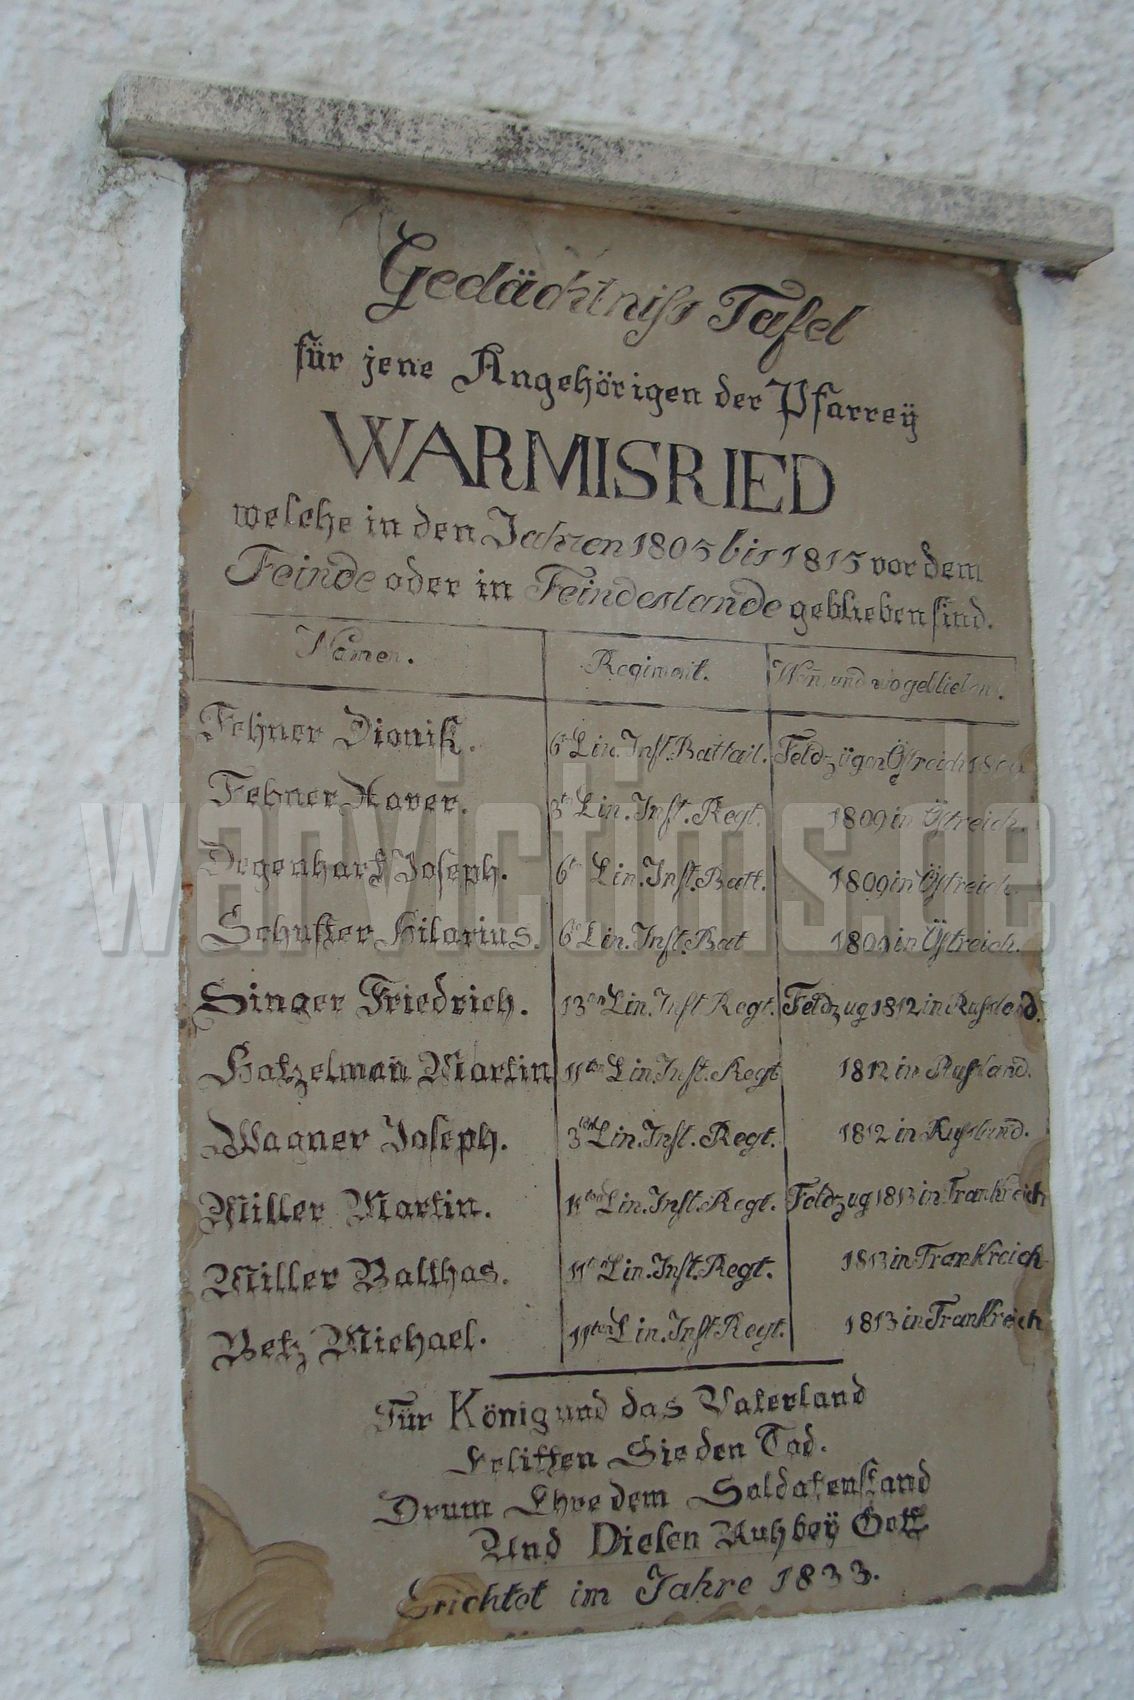 Gedächtniss Tafel
für jene Angehörigen der Pfarreÿ
WARMISRIED
welche in den Jahren 1805 bis 1815 vor dem
Feinde oder in Feindeslande geblieben sind.
Namen. Regiment. Wen̄ und wo geblieben.
Fehner Dionisi. 6te Lin. Inft. Battail. Feldzüge in Östreich
Fehner Xaver. 3ten Lin. Inft. Regt. 1809 in Östreich.
Degenhart Joseph. 6te Lin. Inft. Batt. 1809 in Östreich.
Schuster Hilarius. 6te Lin. Inft. Bat 1809 in Östreich.
Singer Friedrich. 13ten Lin. Inft Regt. Feldzug 1812 in Russland.
Hatzelman̄ Martin 11ten Lin. Inft. Regt 1812 in Russland.
Wagner Joseph. 3ten Lin. Inft. Regt. 1812 in Russland.
Miller Martin. 11ten Lin. Inft. Regt. Feldzug 1813 in Frankreich
Miller Balthas. 11ten Lin. Inft. Regt. 1813 in Frankreich
Betz Michael. 11ten Lin. Inft. Regt. 1813 in Frankreich
Für König und das Vaterland
Erlitten Sie den Tod.
Drum Ehre dem Soldatenstand
Und Diesen Ruh beÿ Gott
Erichtet im Jahre 1833.
warvictims.de